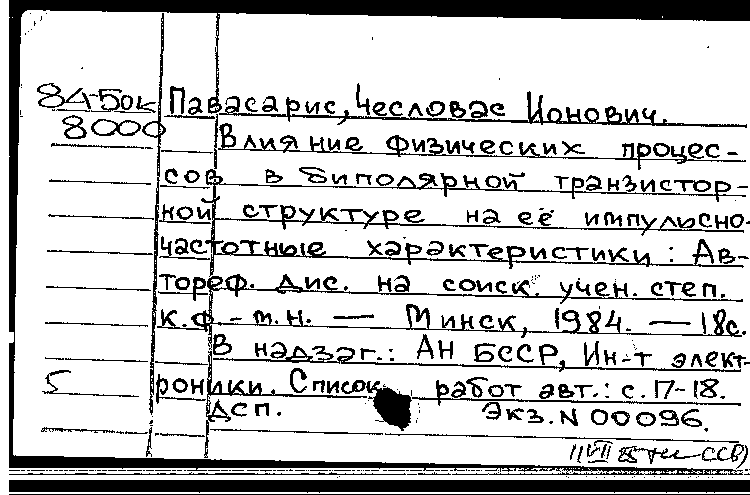 84-50к Павасарис, Чесловас Ионович.
8000 Влияние физических процес-
сов в биполярной транзистор-
ной структуре на её импульсно-
частотные характеристики: Ав-
тореф. дис. на соиск. учен. степ.
к.ф.-м.н. — Минск, 1984. — 18с.
В надзаг.: АН БССР, Ин-т элект-
5 роники. Список работ авт.: с. 17-18.
ДСП. Экз. N 00096.